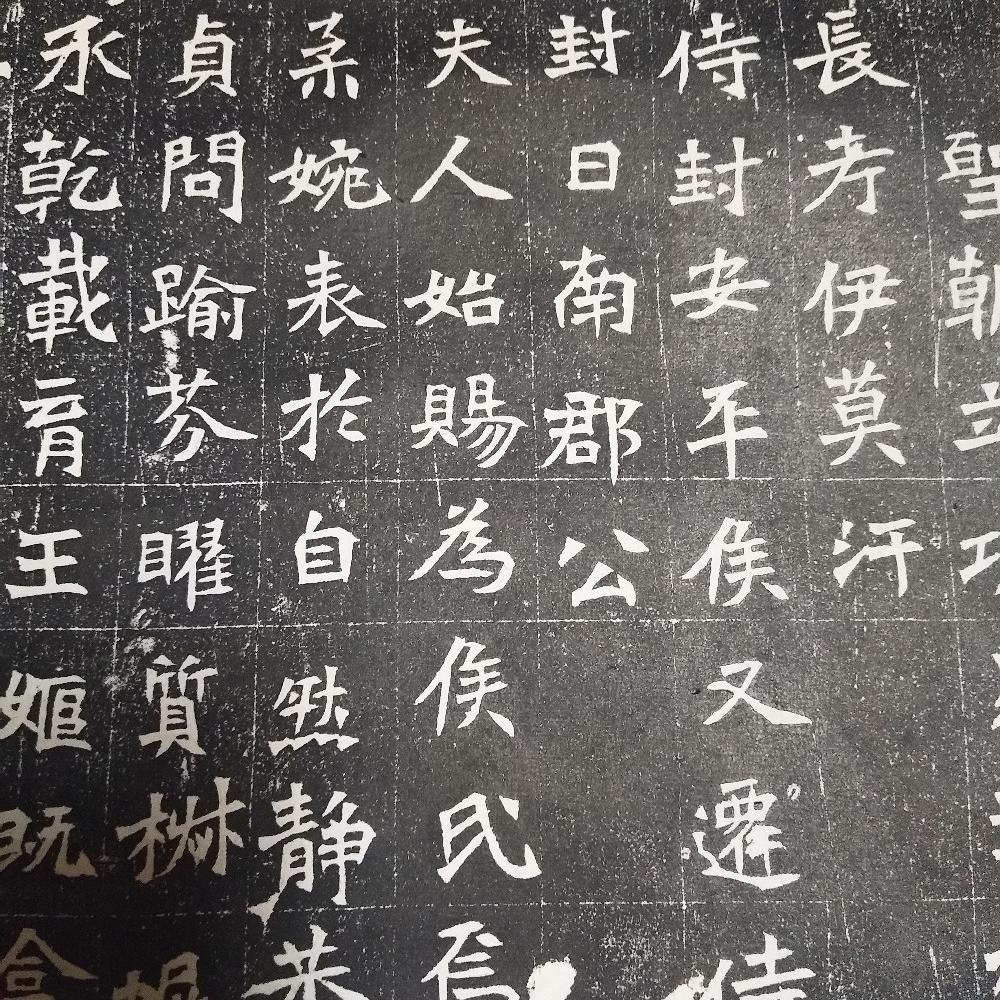 聖朝立
長孝伊莫汗
侍封安平侯又遷侍
封日南郡公
夫人始賜為侯氏焉
柔婉表於自然靜恭
貞問踰芬曜質椒
永乾載育王姬既